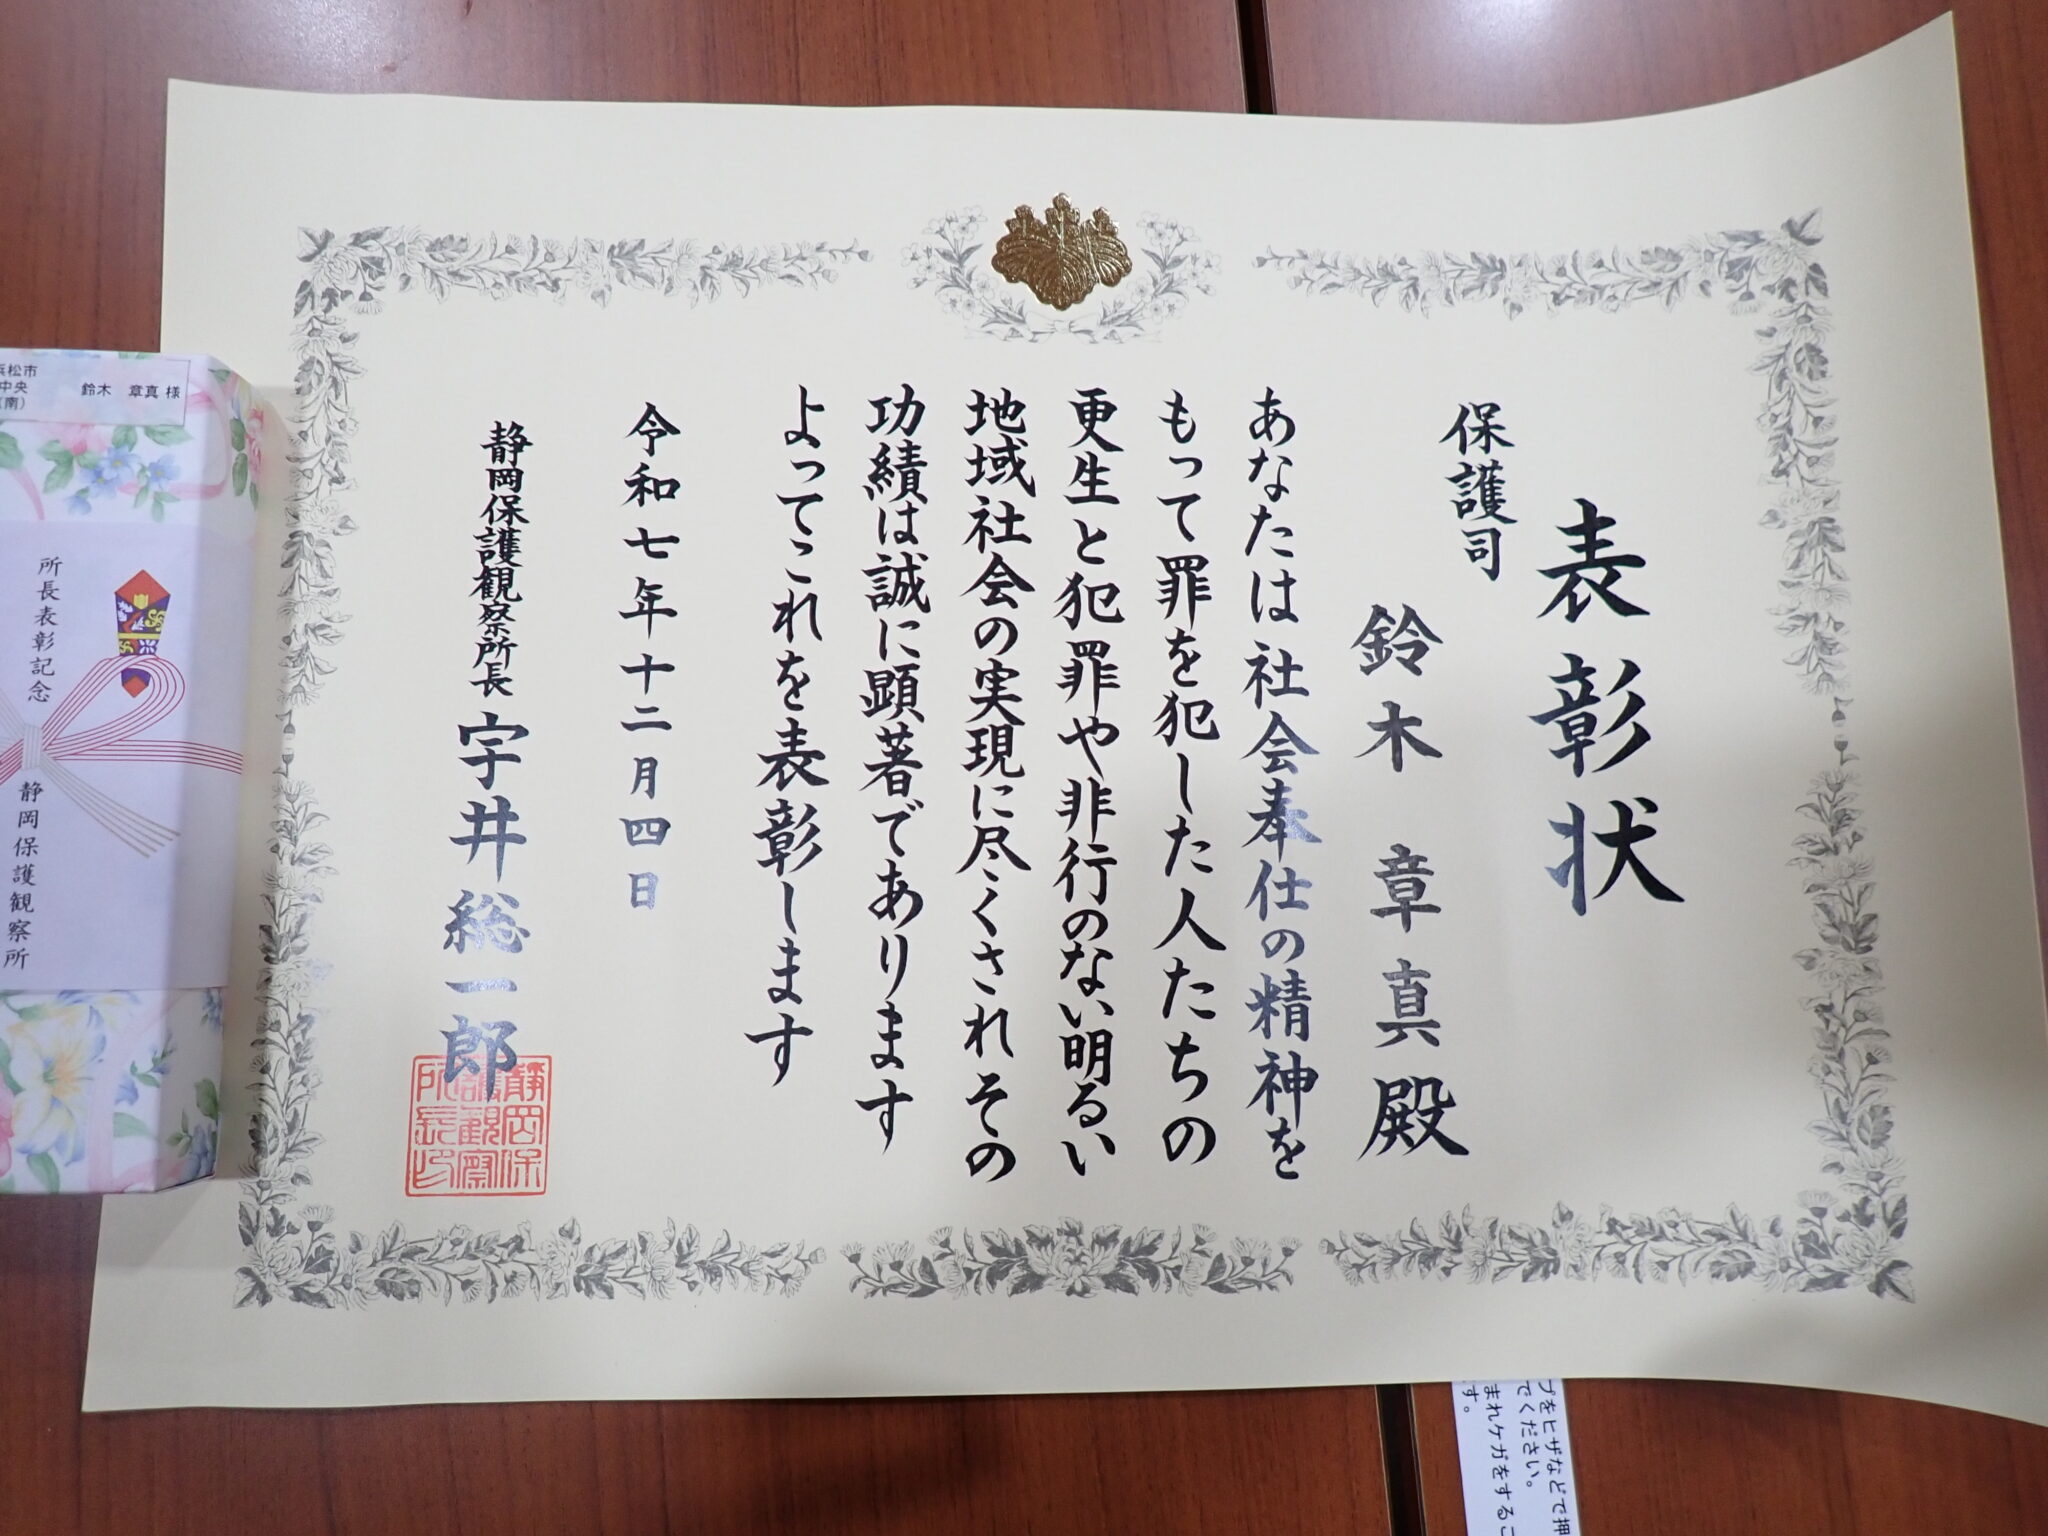 表彰状
保護司
鈴木 章真 殿
あなたは社会奉仕の精神を
もって罪を犯した人たちの
更生と犯罪や非行のない明るい
地域社会の実現に尽くされその
功績は誠に顕著であります
よってこれを表彰します
令和七年十二月四日
静岡保護観察所長 宇井総一郎
静岡保
護観察
所長印
浜松市
中央
(南)
鈴木 章真 様
所長表彰記念
静岡保護観察所
プをヒザなどで押
でください。
まれケガをするこ
す。